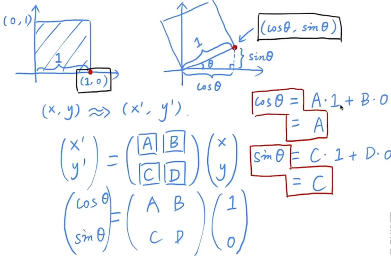 (0,1)
1
(1,0)
1
θ
cosθ
sinθ
(cosθ, sinθ)
(x, y) ≈> (x', y').
(x' y') = (A B C D) (x y)
(cosθ sinθ) = (A B C D) (1 0)
cosθ = A·1 + B·0
= A
sinθ = C·1 + D·0
= C